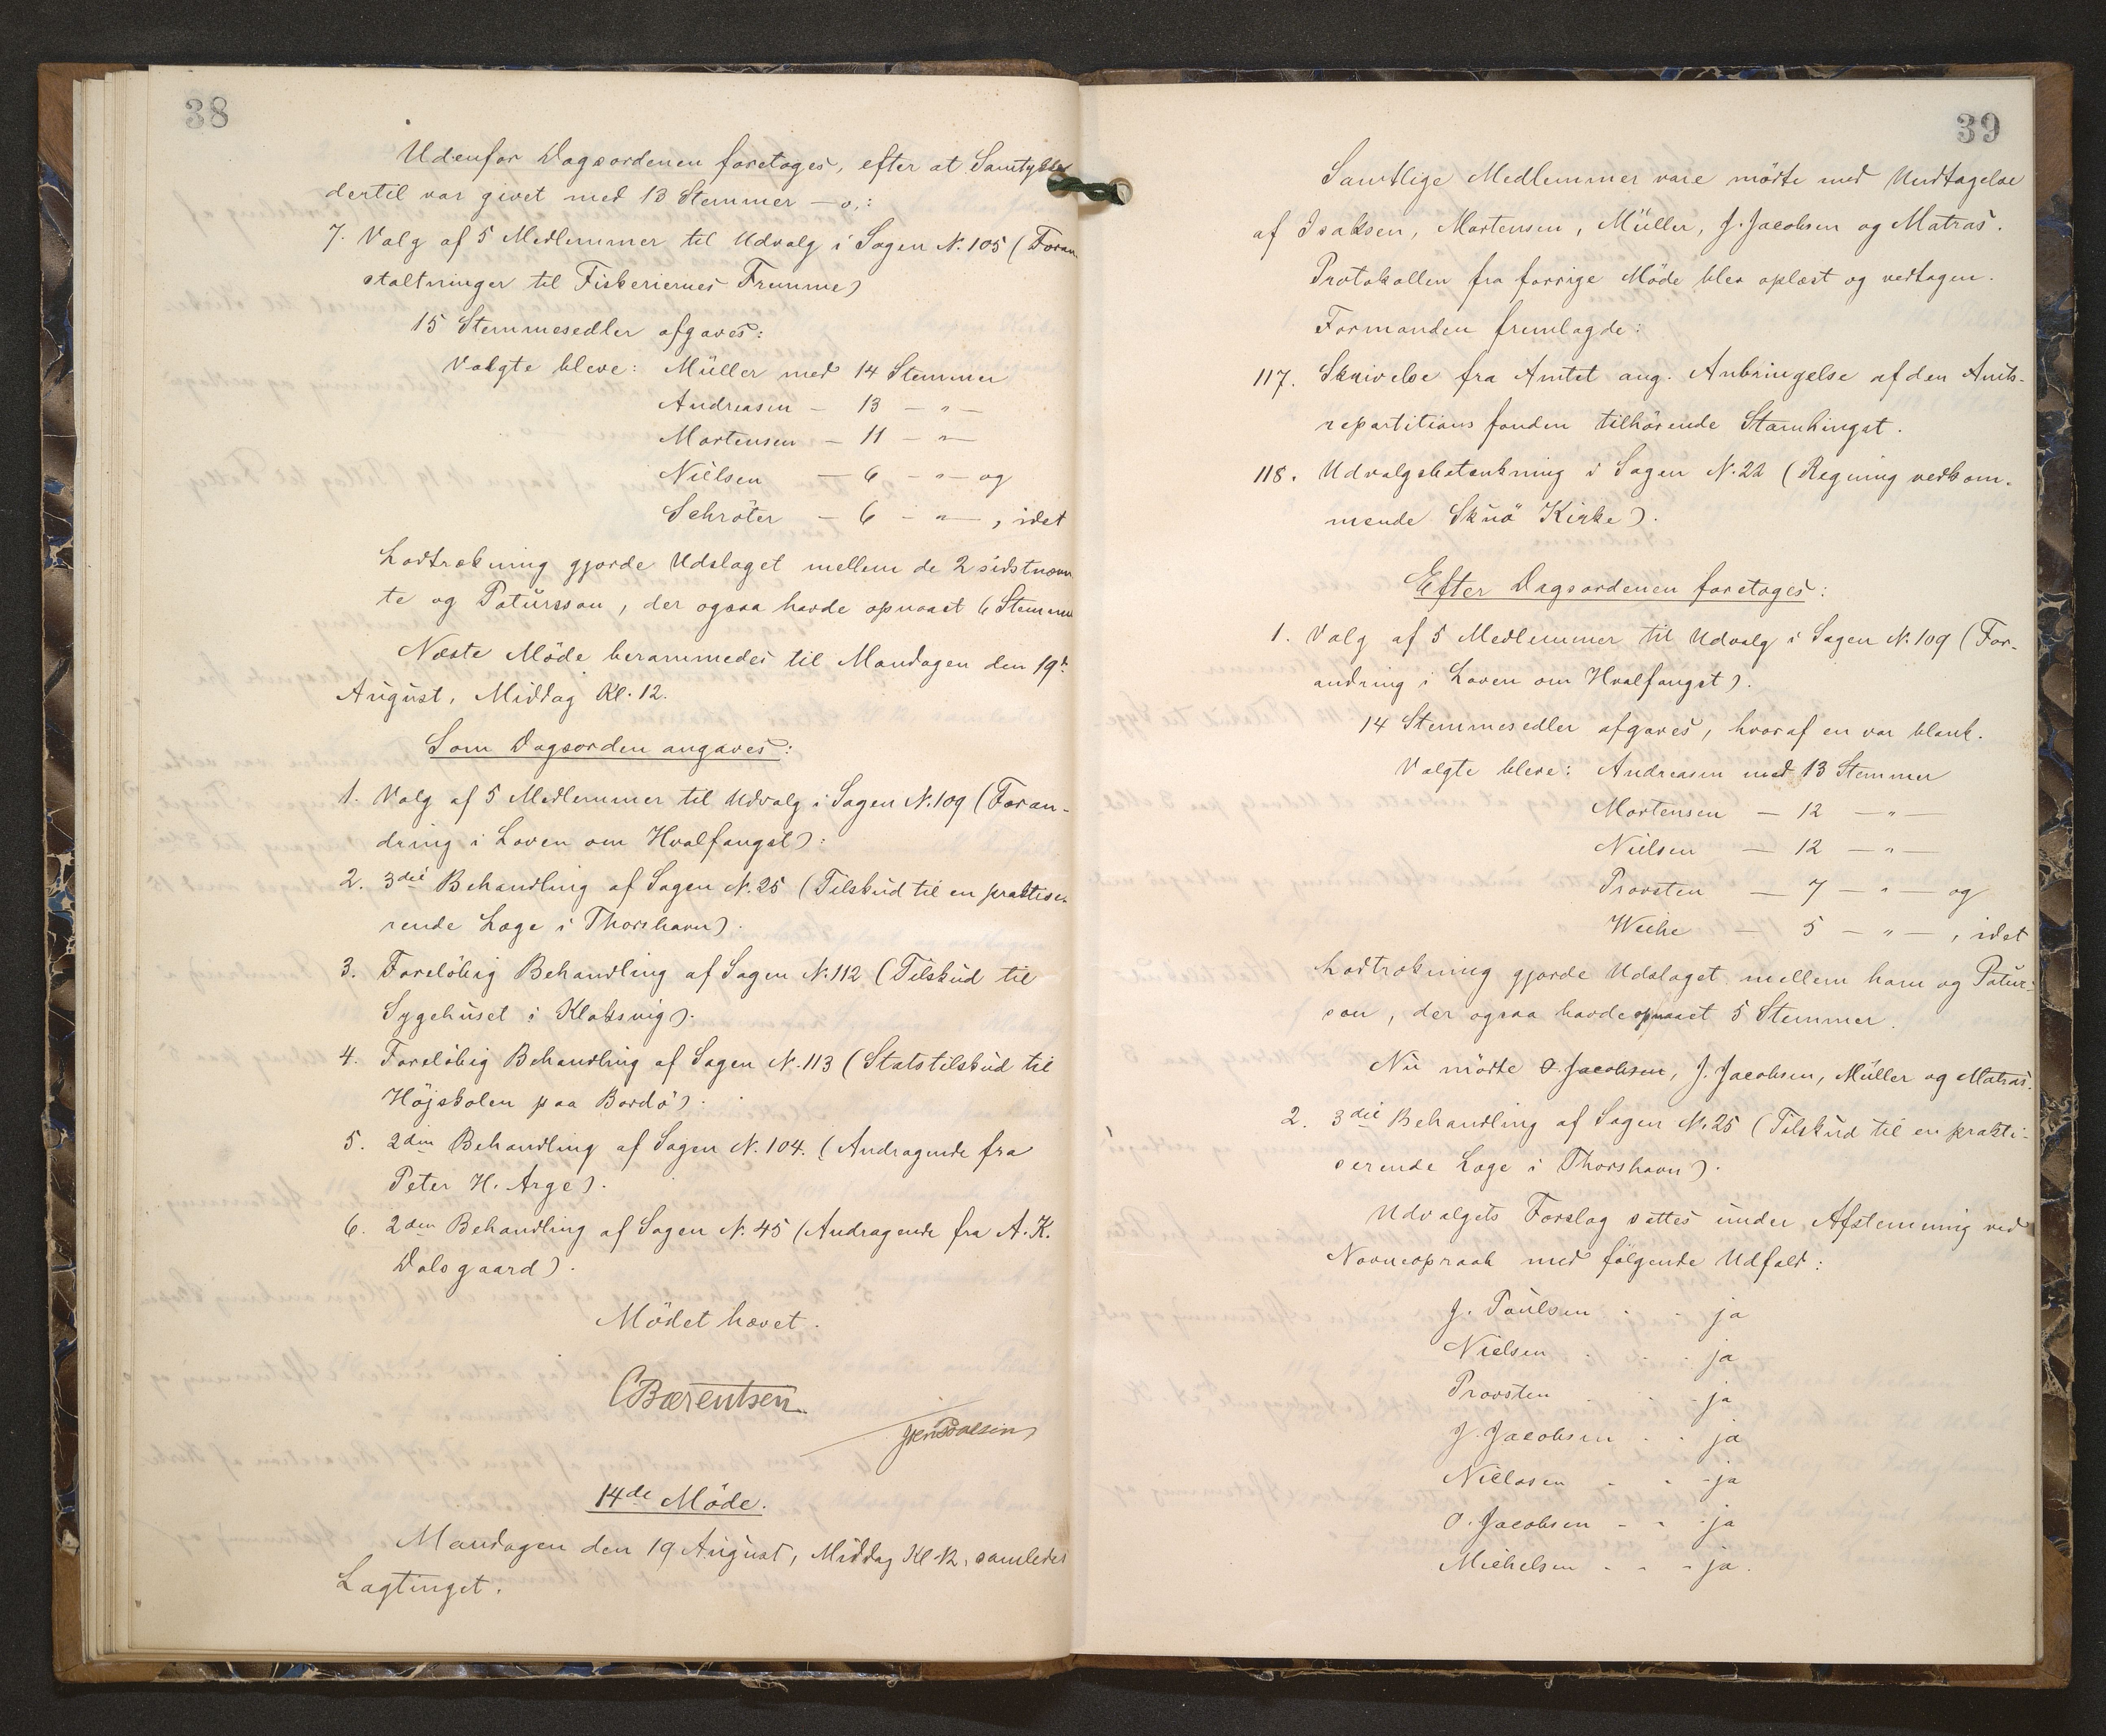 38
Udenfor Dagsordenen foretoges, efter at Samtykke
dertil var givet med 13 Stemmer — o,:
7. Valg af 5 Medlemmer til Udvalg i Sagen N. 105 (Foran-
staltninger til Fiskeriernes Fremme)
15 Stemmesedler afgaves:
Valgte bleve: Müller med 14 Stemmer
Andreasen — 13 — " —
Mortensen — 11 — " —
Nielsen — 6 — " — og
Schröter — 6 — " — , idet
Lodtrækning gjorde Udslaget mellem de 2 sidstnævn
te og Patursson, der ogsaa havde opnaaet 6 Stemmer
Næste Möde berammedes til Mandagen den 19d.
August, Middag Kl. 12.
Som Dagsorden angaves:
1. Valg af 5 Medlemmer til Udvalg i Sagen N. 109 (Foran-
dring i Loven om Hvalfangst):
2. 3die Behandling af Sagen N. 25 (Tilskud til en praktise-
rende Læge i Thorshavn).
3. Foreløbig Behandling af Sagen N. 112 (Tilskud til
Sygehuset i Klaksvig).
4. Foreløbig Behandling af Sagen N. 113 (Statstilskud til
Höjskolen paa Bordö).
5. 2den Behandling af Sagen N. 104. (Andragende fra
Peter H. Arge).
6. 2den Behandling af Sagen N. 45 (Andragende fra A. K.
Dalsgaard).
Mödet hævet.
CBærentsen
14de Möde.
Mandagen den 19 August, Middag Kl 12, samledes
Lagtinget.
39
Samtlige Medlemmer vare mödte med Undtagelse
af Isaksen, Mortensen, Müller, J. Jacobsen og Matras.
Protokollen fra forrige Möde blev oplæst og vedtagen.
Formanden fremlagde:
117. Skrivelse fra Amtet ang. Anbringelse af den Amts-
repartitionsfonden tilhörende Stamhingst.
118. Udvalgsbetænkning i Sagen N. 22 (Regning vedkom-
mende Skuö Kirke).
Efter Dagsordenen foretoges:
1. Valg af 5 Medlemmer til Udvalg i Sagen N. 109 (For-
andring i Loven om Hvalfangst).
14 Stemmesedler afgaves, hvoraf en var blank.
Valgte bleve: Andreasen med 13 Stemmer
Mortensen — 12 — " —
Nielsen — 12 — " —
Provsten — 7 — " — og
Weihe — 5 — " — , idet
Lodtrækning gjorde Udslaget mellem ham og Paturs-
son, der ogsaa havde opnaaet 5 Stemmer.
Nu mödte O. Jacobsen, J. Jacobsen, Müller og Matras.
2. 3die Behandling af Sagen N. 25 (Tilskud til en prakti-
serende Læge i Thorshavn).
Udvalgets Forslag sattes under Afstemning ved
Navneopraab med fölgende Udfald:
J. Poulsen - - ja
Nielsen - - - ja
Provsten - - - ja
J. Jacobsen - - ja
Niclasen - - - ja
O. Jacobsen - - - ja
Michelsen - - - ja.